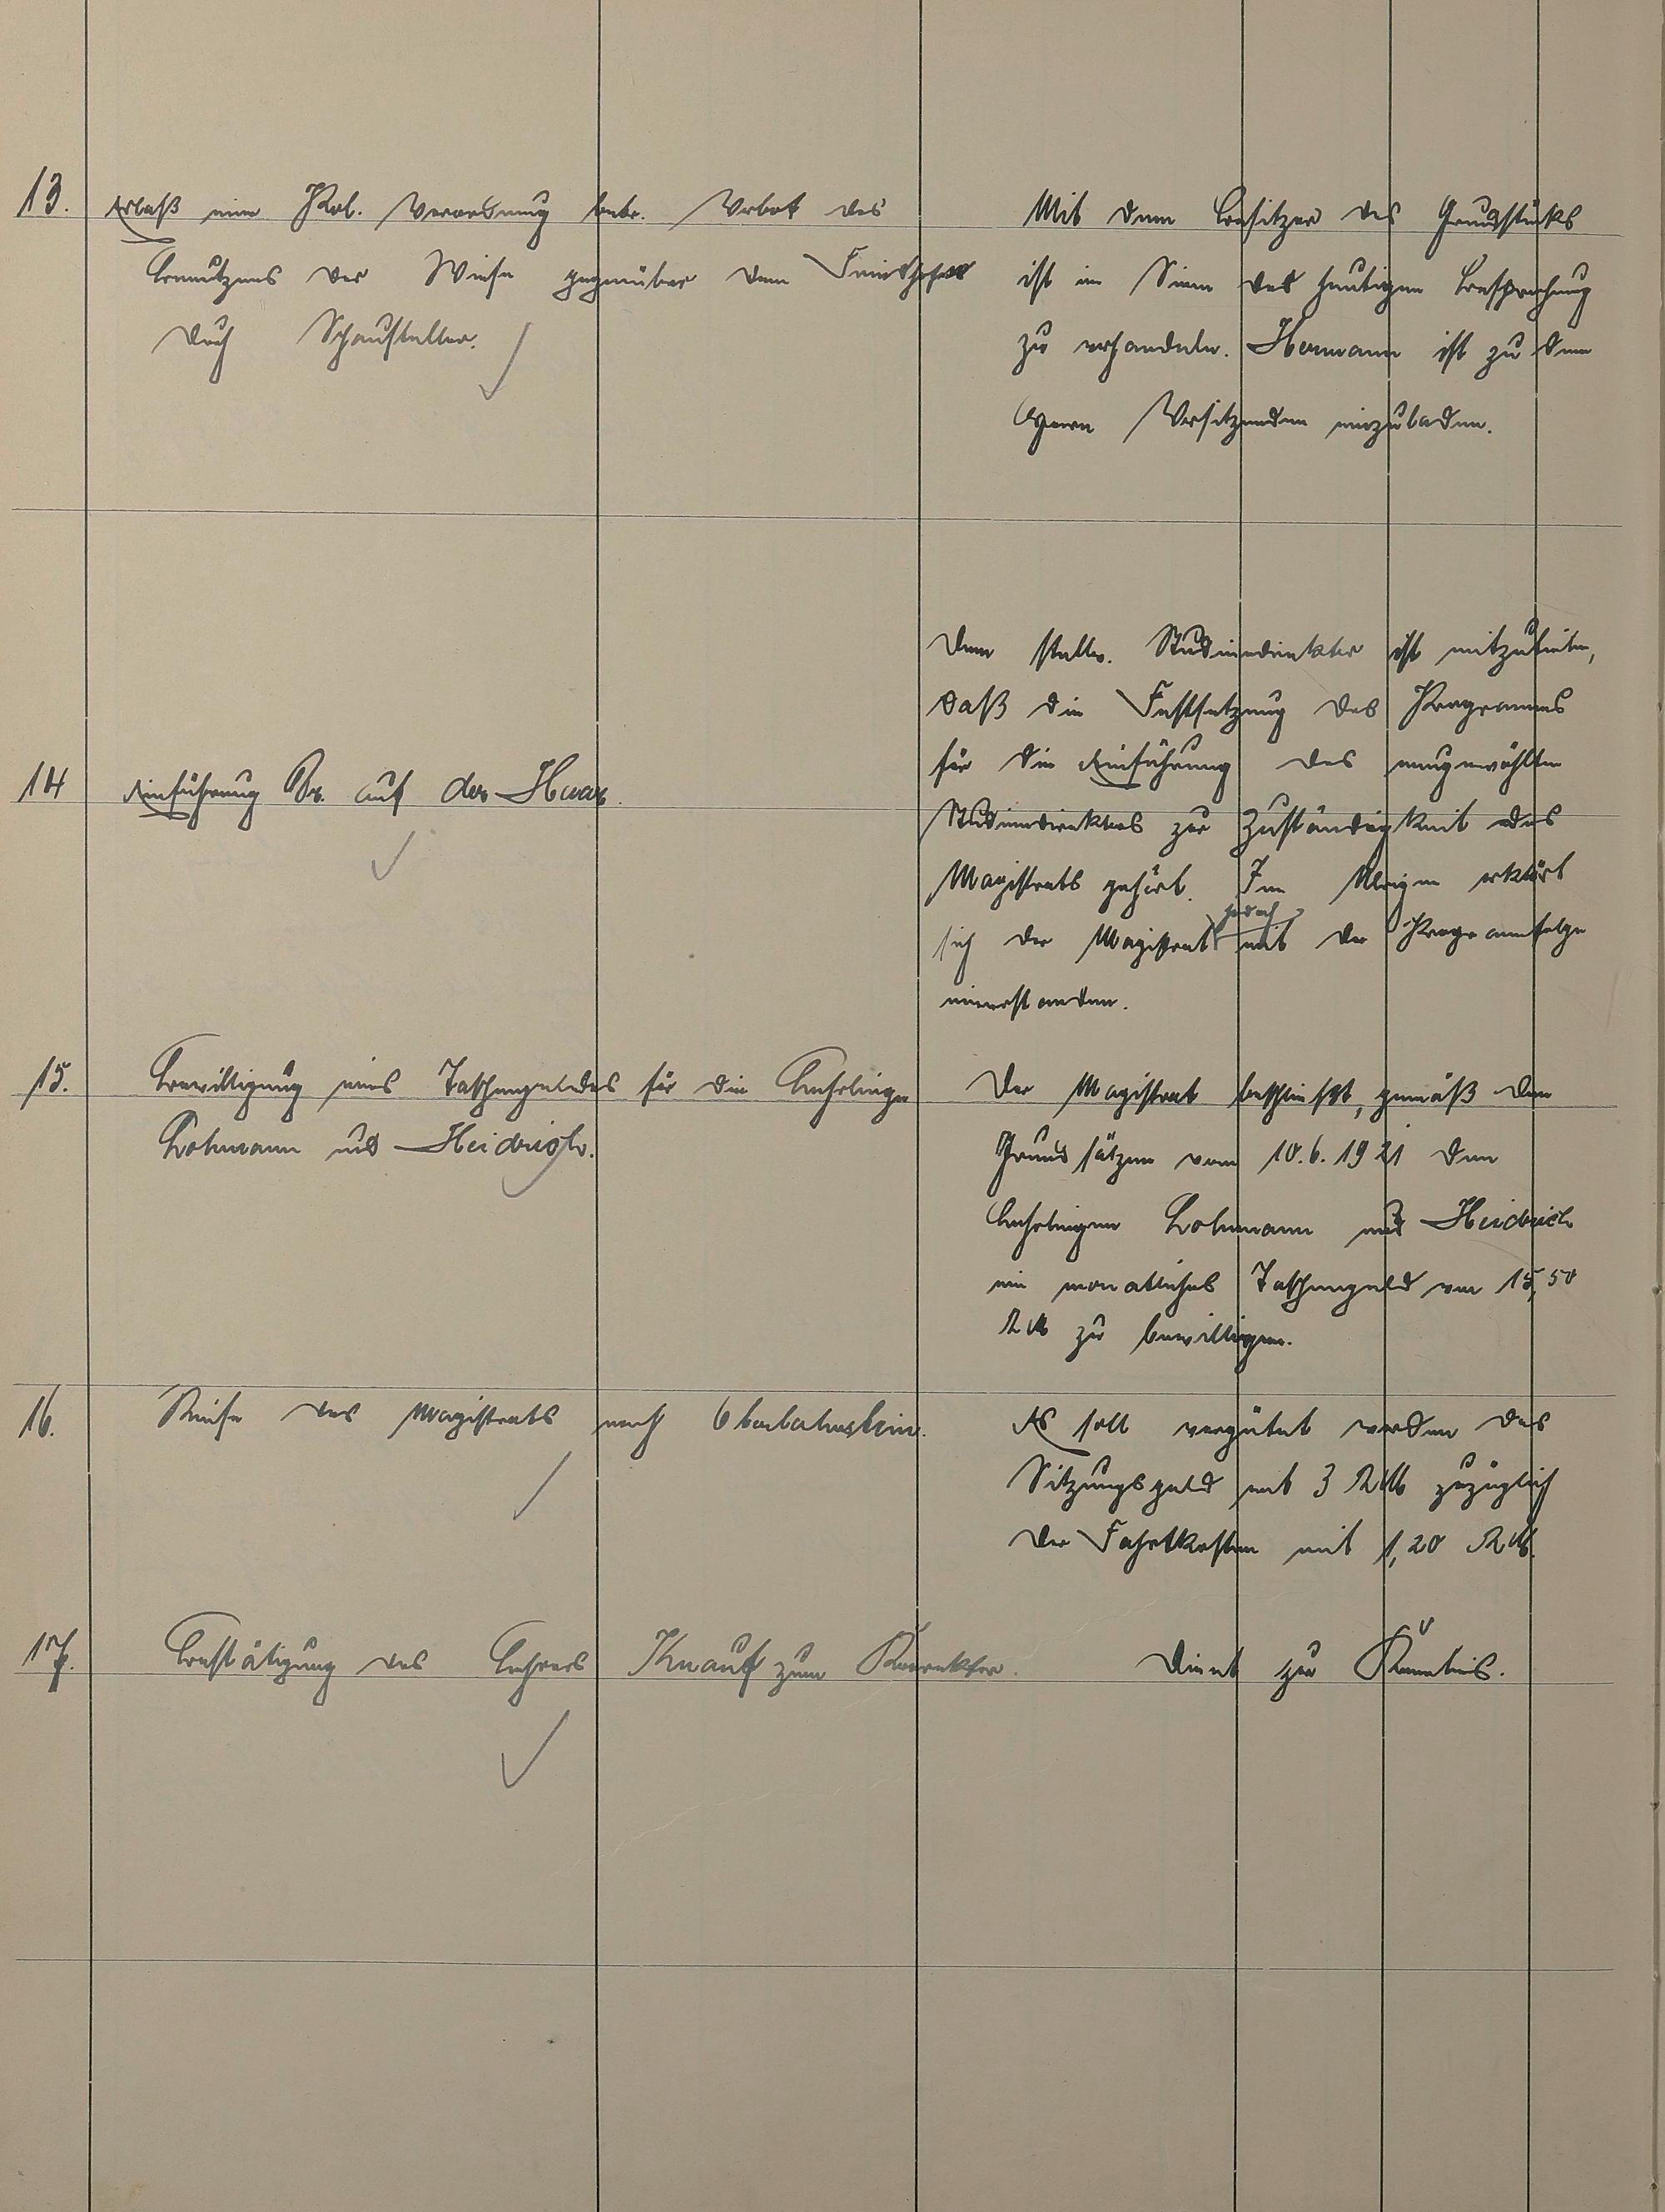 13. Erlaß einer Pol. Verordnung betr. Verbot des
Benutzens der Wiese gegenüber dem Friedhofes
durch Schausteller.
Mit dem Besitzer des Grundstücks
ist im Sinne der heutigen Besprechung
zu verhandeln. Hermann ist zu dem
Herrn Vorsitzenden einzuladen.
14 Einführung Dr. auf der Haar.
Dem stellv. Studiendirektor ist mitzuteilen,
daß die Festsetzung des Programms
für die Einführung des neugewählten
Studiendirektors zur Zuständigkeit des
Magistrats gehört. Im Übrigen erklärt
jedoch
sich der Magistrat mit der Programmfolge
einverstanden.
15. Bewilligung eines Taschengeldes für die Lehrlinge
Lohmann und Heidrich.
Der Magistrat beschließt, gemäß den
Grundsätzen vom 10.6.1921 den
Lehrlingen Lohmann und Heidrich
ein monatliches Taschengeld von 15,50
RM zu bewilligen.
16. Reise des Magistrats nach Oberlahnstein.
Es soll vergütet werden das
Sitzungsgeld mit 3 RM zuzüglich
der Fahrtkosten mit 1,20 RM.
17. Bestätigung des Lehrers Knauf zum Konrektor.
Dient zur Kenntnis.